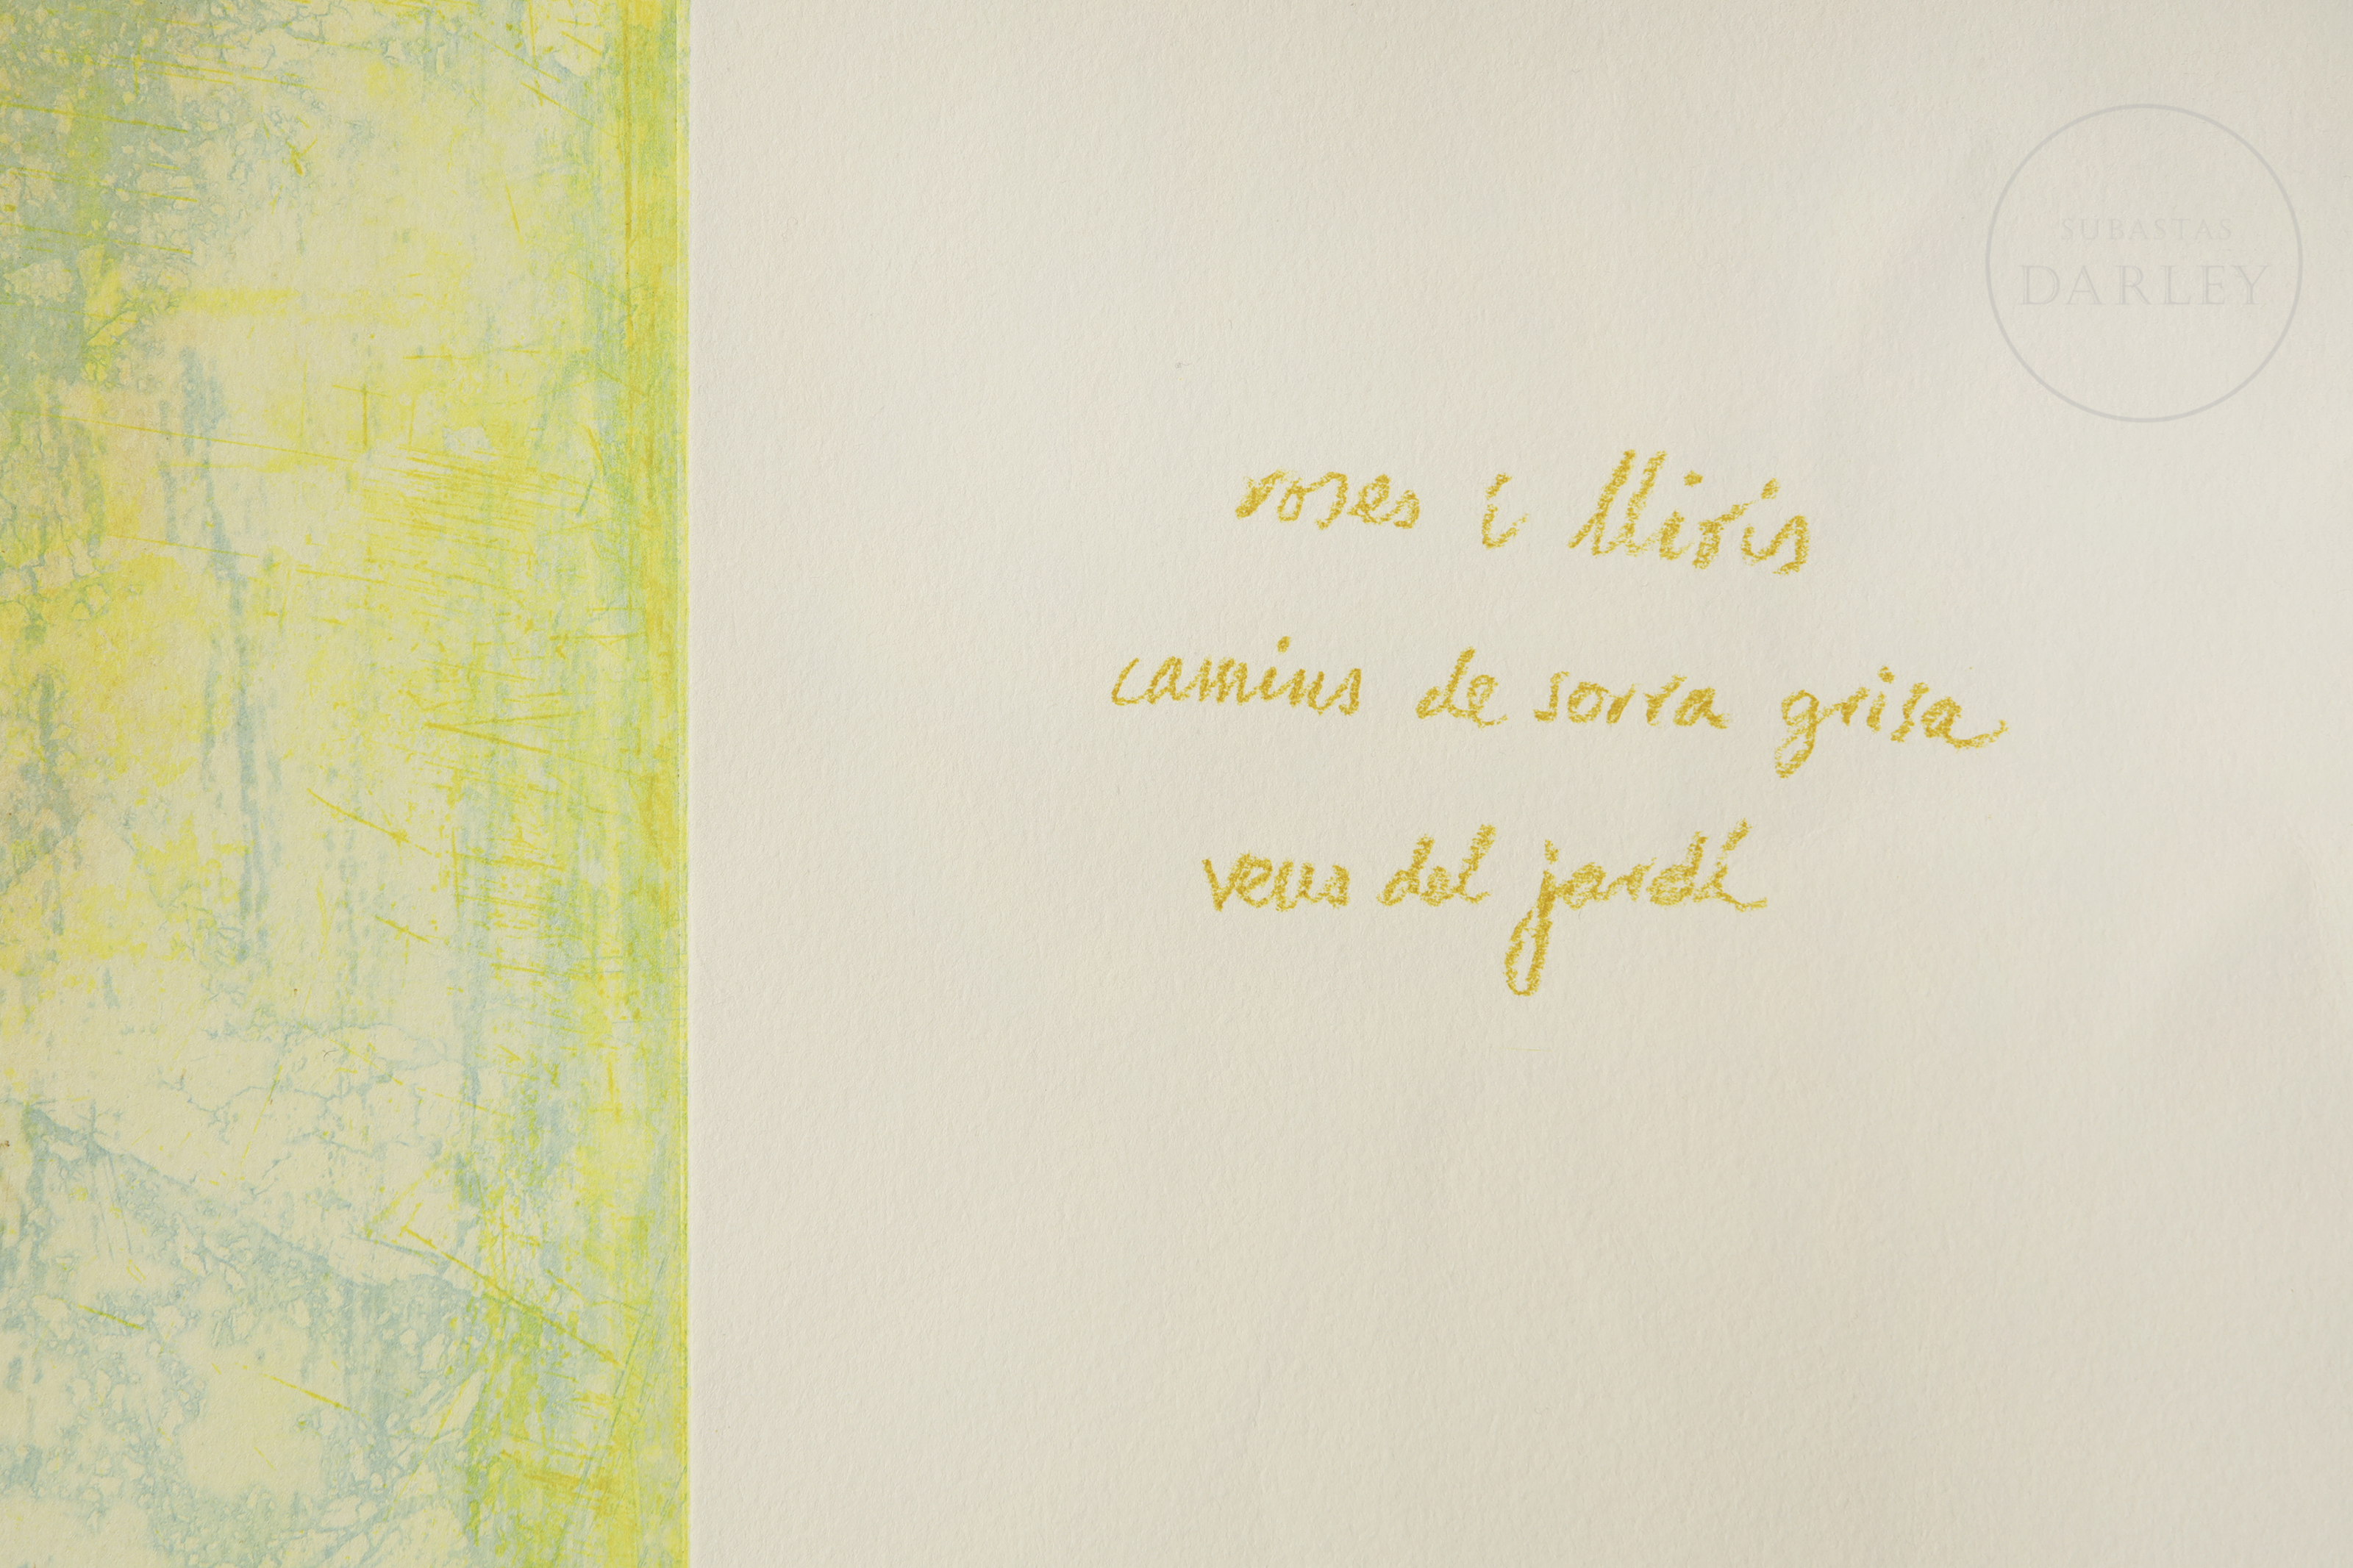 SUBASTAS
DARLEY
roses i lliris
camins de sorra grisa
veus del jardí